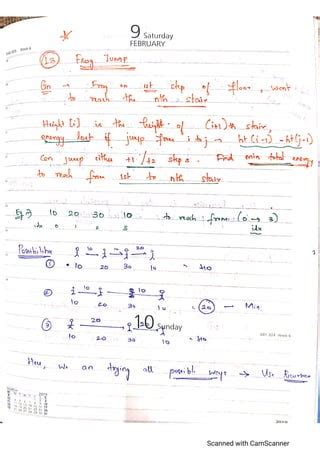 9 Saturday
FEBRUARY
13 Frog Jump
Frog on 1st step of floor, want
to reach the nth stair
Height [i] is the height of (i+1)th stair,
energy lost if jump from i to j → ht(i-1) - ht(j-1)
Can jump either +1 / +2 steps. Find min total energy
to reach from 1st to nth stair
10 20 30 10 to reach from (0 → 3)
idx
Possibilities
10 10 20
① 10 20 30 10
10 10
② 10 20 30 10 20 — Min
10 Sunday
20 20
③ 10 20 30 10
Here, we are trying all possible ways → Use Recursion
Scanned with CamScanner